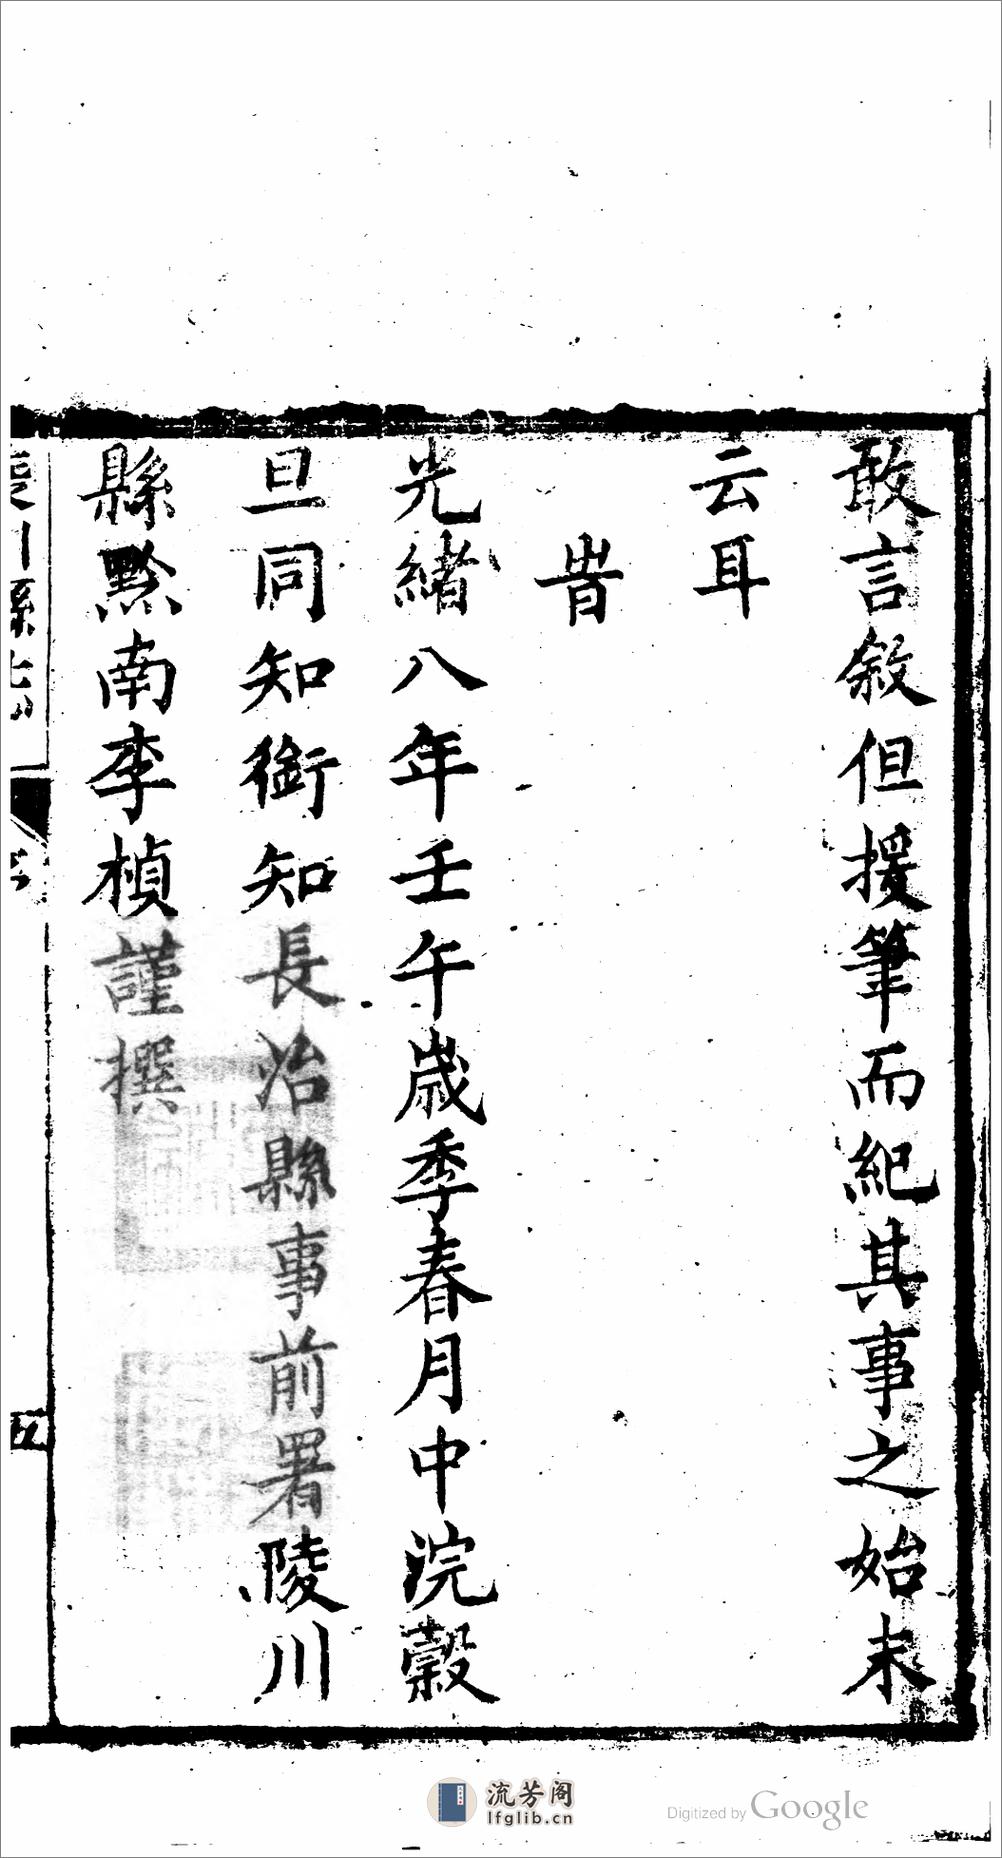 敢言敘但援筆而紀其事之始末
云耳
旹
光緒八年壬午歲季春月中浣穀
旦同知銜知長治縣事前署陵川
縣黔南李楨謹撰
流芳阁
lfglib.cn
Digitized by Google